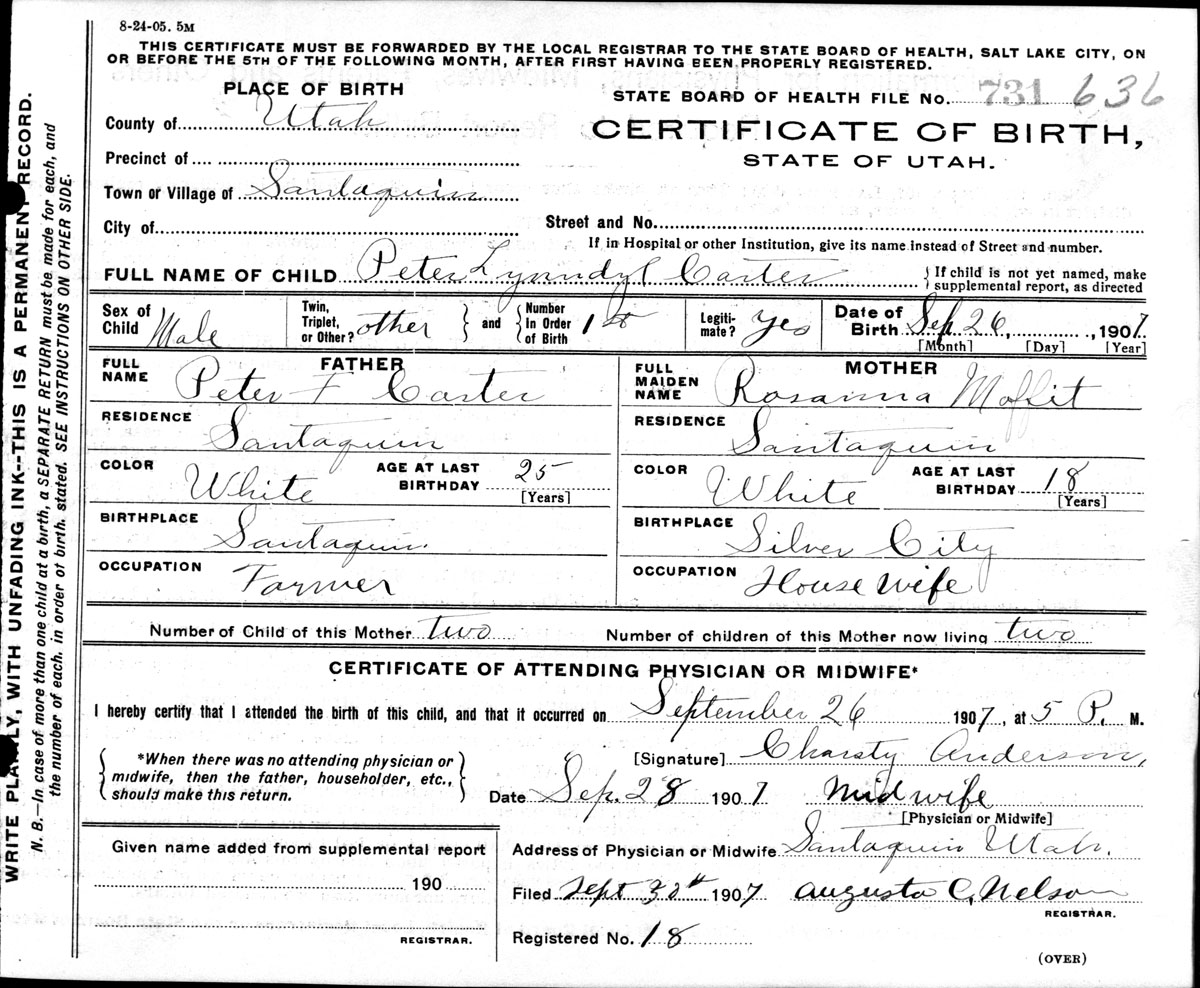 8-24-05. 5M
THIS CERTIFICATE MUST BE FORWARDED BY THE LOCAL REGISTRAR TO THE STATE BOARD OF HEALTH, SALT LAKE CITY, ON
OR BEFORE THE 5TH OF THE FOLLOWING MONTH, AFTER FIRST HAVING BEEN PROPERLY REGISTERED.
PLACE OF BIRTH
STATE BOARD OF HEALTH FILE No. 731 636
County of Utah
CERTIFICATE OF BIRTH,
STATE OF UTAH.
Precinct of
Town or Village of Santaquin
City of
Street and No.
If in Hospital or other Institution, give its name instead of Street and number.
FULL NAME OF CHILD Peter Lynndyl Carter
If child is not yet named, make
supplemental report, as directed
Sex of Child Male
Twin, Triplet, or Other? other
and
Number In Order of Birth 1st
Legiti-mate? Yes
Date of Birth Sep. 26, 1907
[Month] [Day] [Year]
FATHER
FULL NAME Peter F Carter
RESIDENCE Santaquin
COLOR White
AGE AT LAST BIRTHDAY 25
[Years]
BIRTHPLACE Santaquin.
OCCUPATION Farmer
MOTHER
FULL MAIDEN NAME Rosanna Moffit
RESIDENCE Santaquin
COLOR White
AGE AT LAST BIRTHDAY 18
[Years]
BIRTHPLACE Silver City
OCCUPATION House wife
Number of Child of this Mother two
Number of children of this Mother now living two
CERTIFICATE OF ATTENDING PHYSICIAN OR MIDWIFE*
I hereby certify that I attended the birth of this child, and that it occurred on September 26 1907, at 5 P. M.
*When there was no attending physician or
midwife, then the father, householder, etc.,
should make this return.
[Signature] Charsty Anderson,
Date Sep. 28 1907 Mid wife
[Physician or Midwife]
Given name added from supplemental report
190
REGISTRAR.
Address of Physician or Midwife Santaquin Utah.
Filed Sept 30th 1907 Augusta C. Nelson
REGISTRAR.
Registered No. 18
(OVER)
WRITE PLAINLY, WITH UNFADING INK--THIS IS A PERMANENT RECORD.
N. B.—In case of more than one child at a birth, a SEPARATE RETURN must be made for each, and
the number of each, in order of birth, stated. SEE INSTRUCTIONS ON OTHER SIDE.